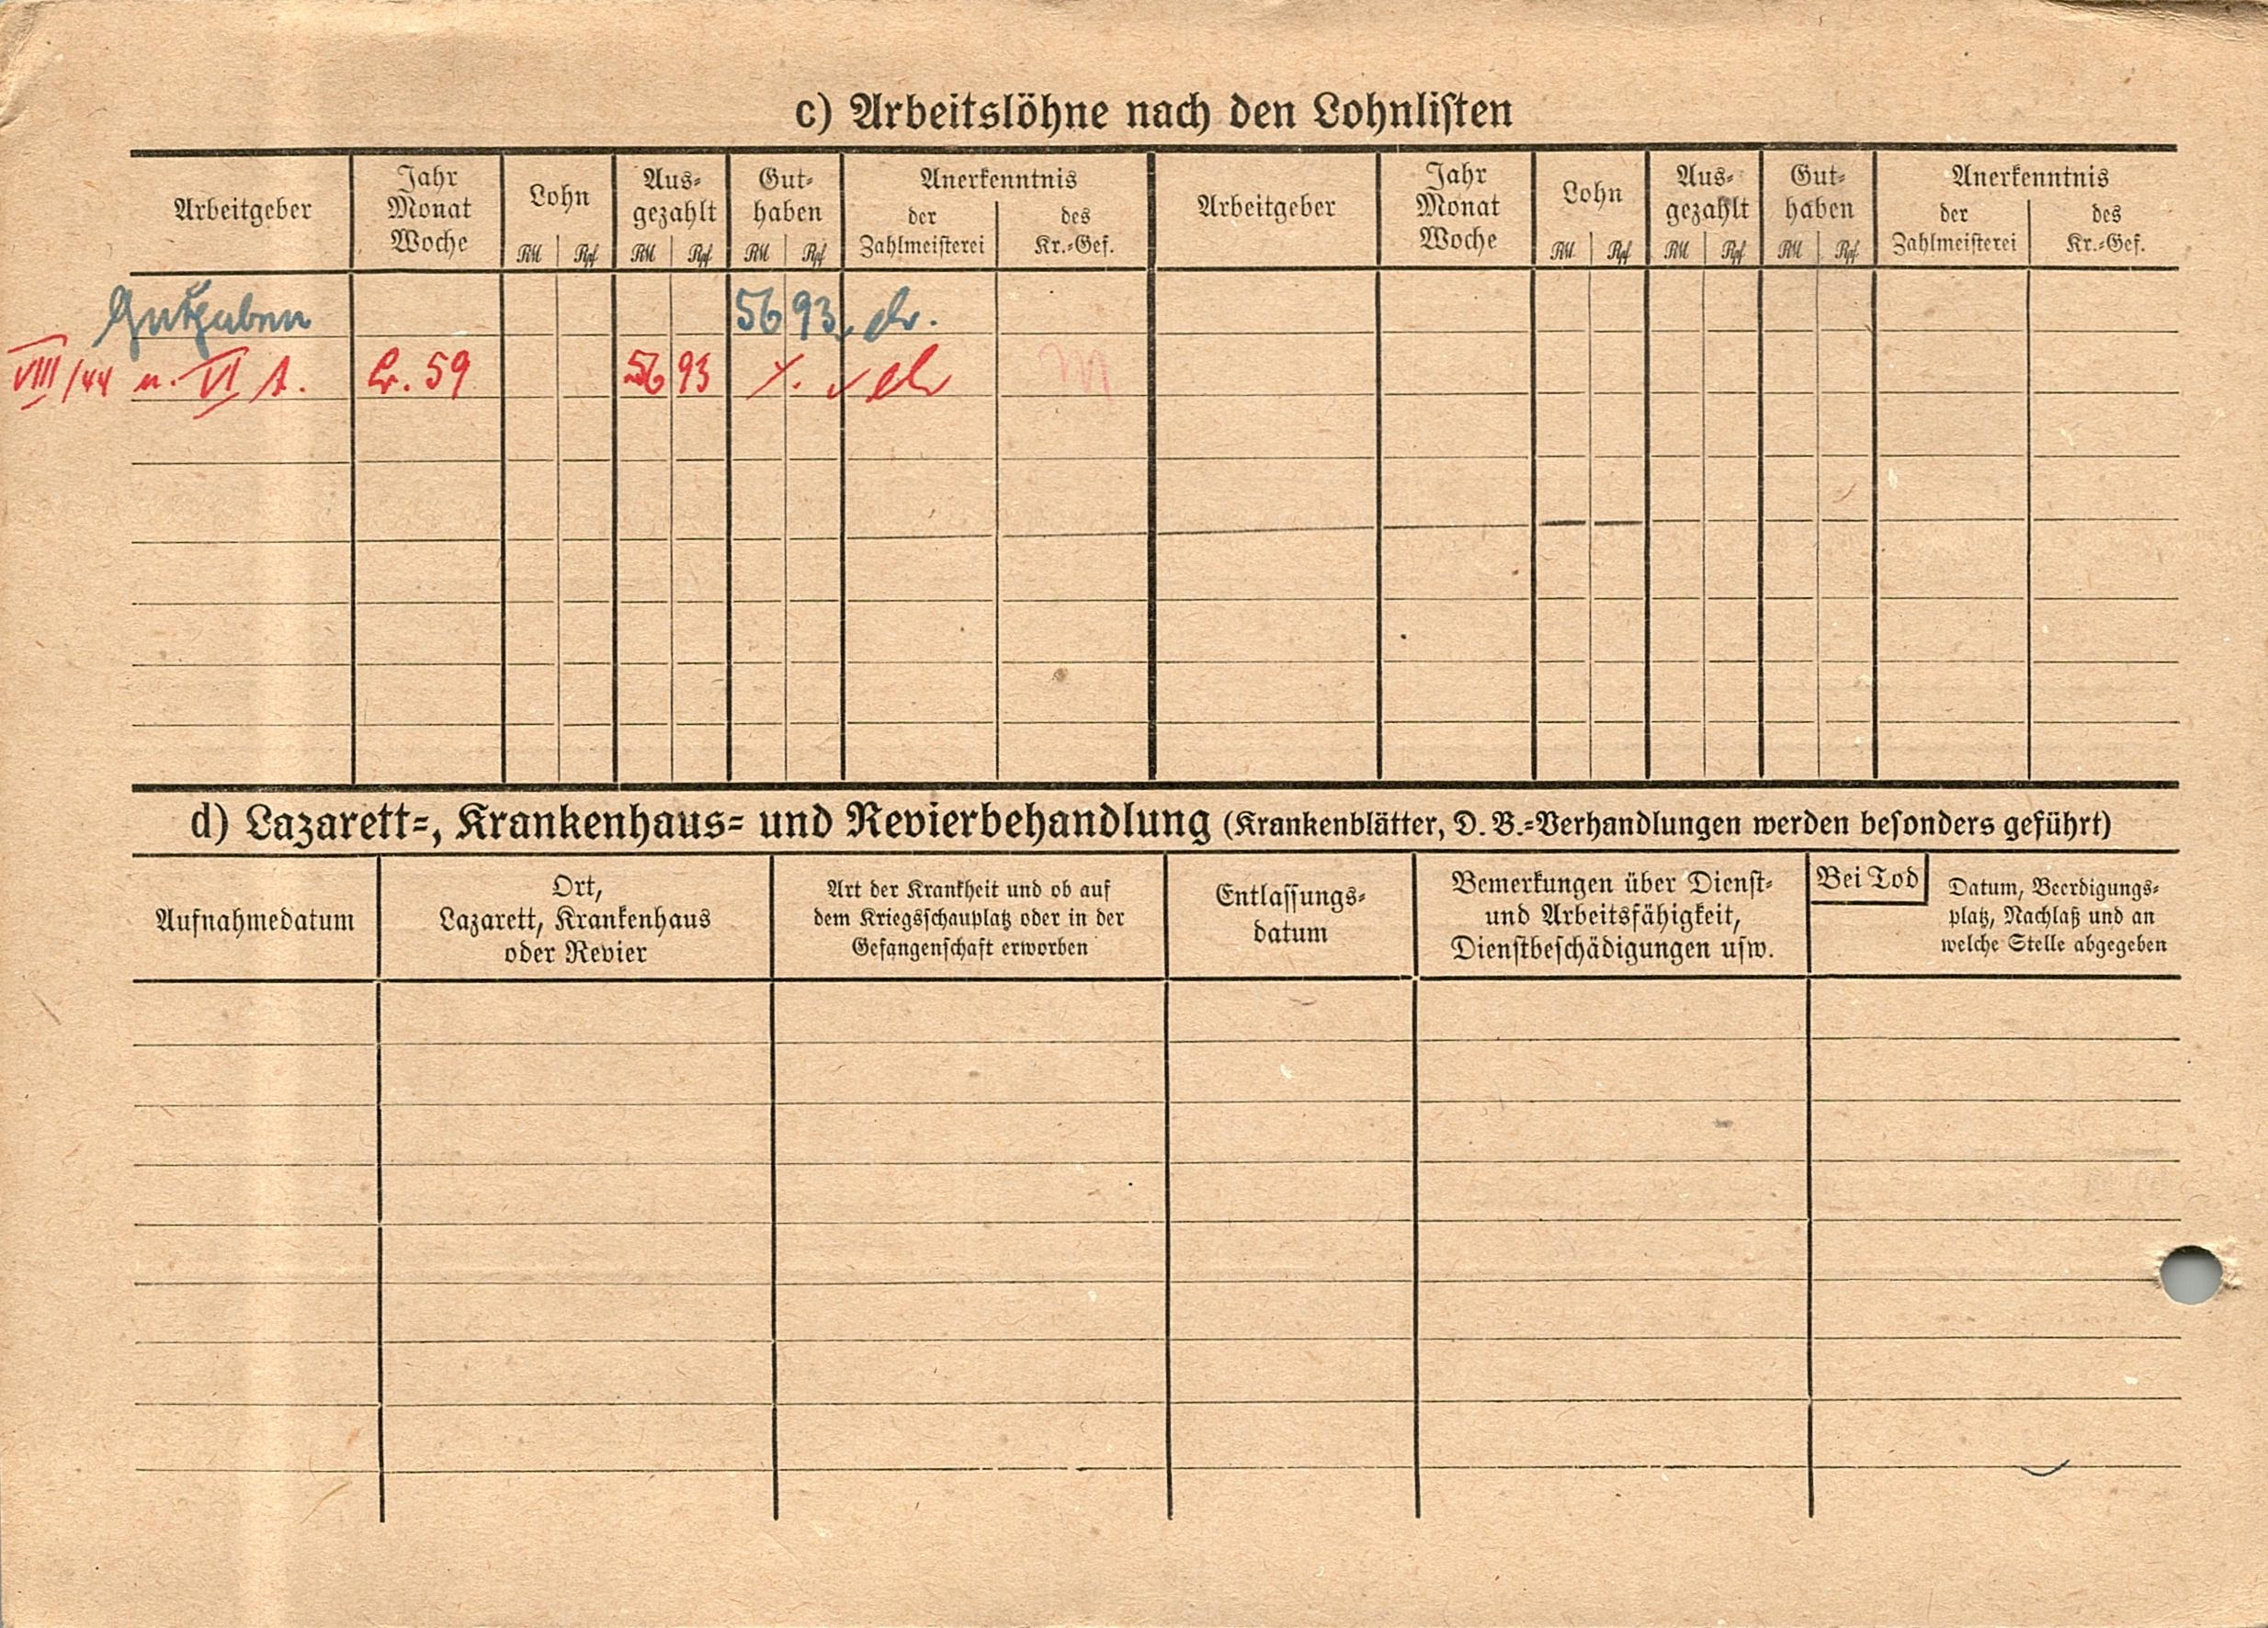 c) Arbeitslöhne nach den Lohnlisten
Arbeitgeber
Jahr
Monat
Woche
Lohn
RM Rpf
Aus-
gezahlt
RM Rpf
Gut-
haben
RM Rpf
Anerkenntnis
der
Zahlmeisterei
des
Kr.-Gef.
Arbeitgeber
Jahr
Monat
Woche
Lohn
RM Rpf
Aus-
gezahlt
RM Rpf
Gut-
haben
RM Rpf
Anerkenntnis
der
Zahlmeisterei
des
Kr.-Gef.
Guthaben 56 93
VIII/44 u. VI A. 59 56 93
d) Lazarett-, Krankenhaus- und Revierbehandlung (Krankenblätter, D. B.-Verhandlungen werden besonders geführt)
Aufnahmedatum
Ort,
Lazarett, Krankenhaus
oder Revier
Art der Krankheit und ob auf
dem Kriegsschauplatz oder in der
Gefangenschaft erworben
Entlassungs-
datum
Bemerkungen über Dienst-
und Arbeitsfähigkeit,
Dienstbeschädigungen usw.
Bei Tod
Datum, Beerdigungs-
platz, Nachlaß und an
welche Stelle abgegeben